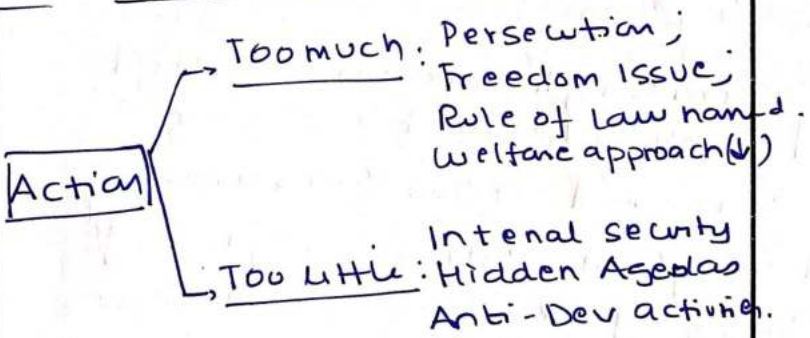 Action
Too much : Persecution ;
Freedom Issue ;
Rule of Law
welfare approach (↓)
Too little : Intenal security
Hidden Agedas
Anti-Dev activities.